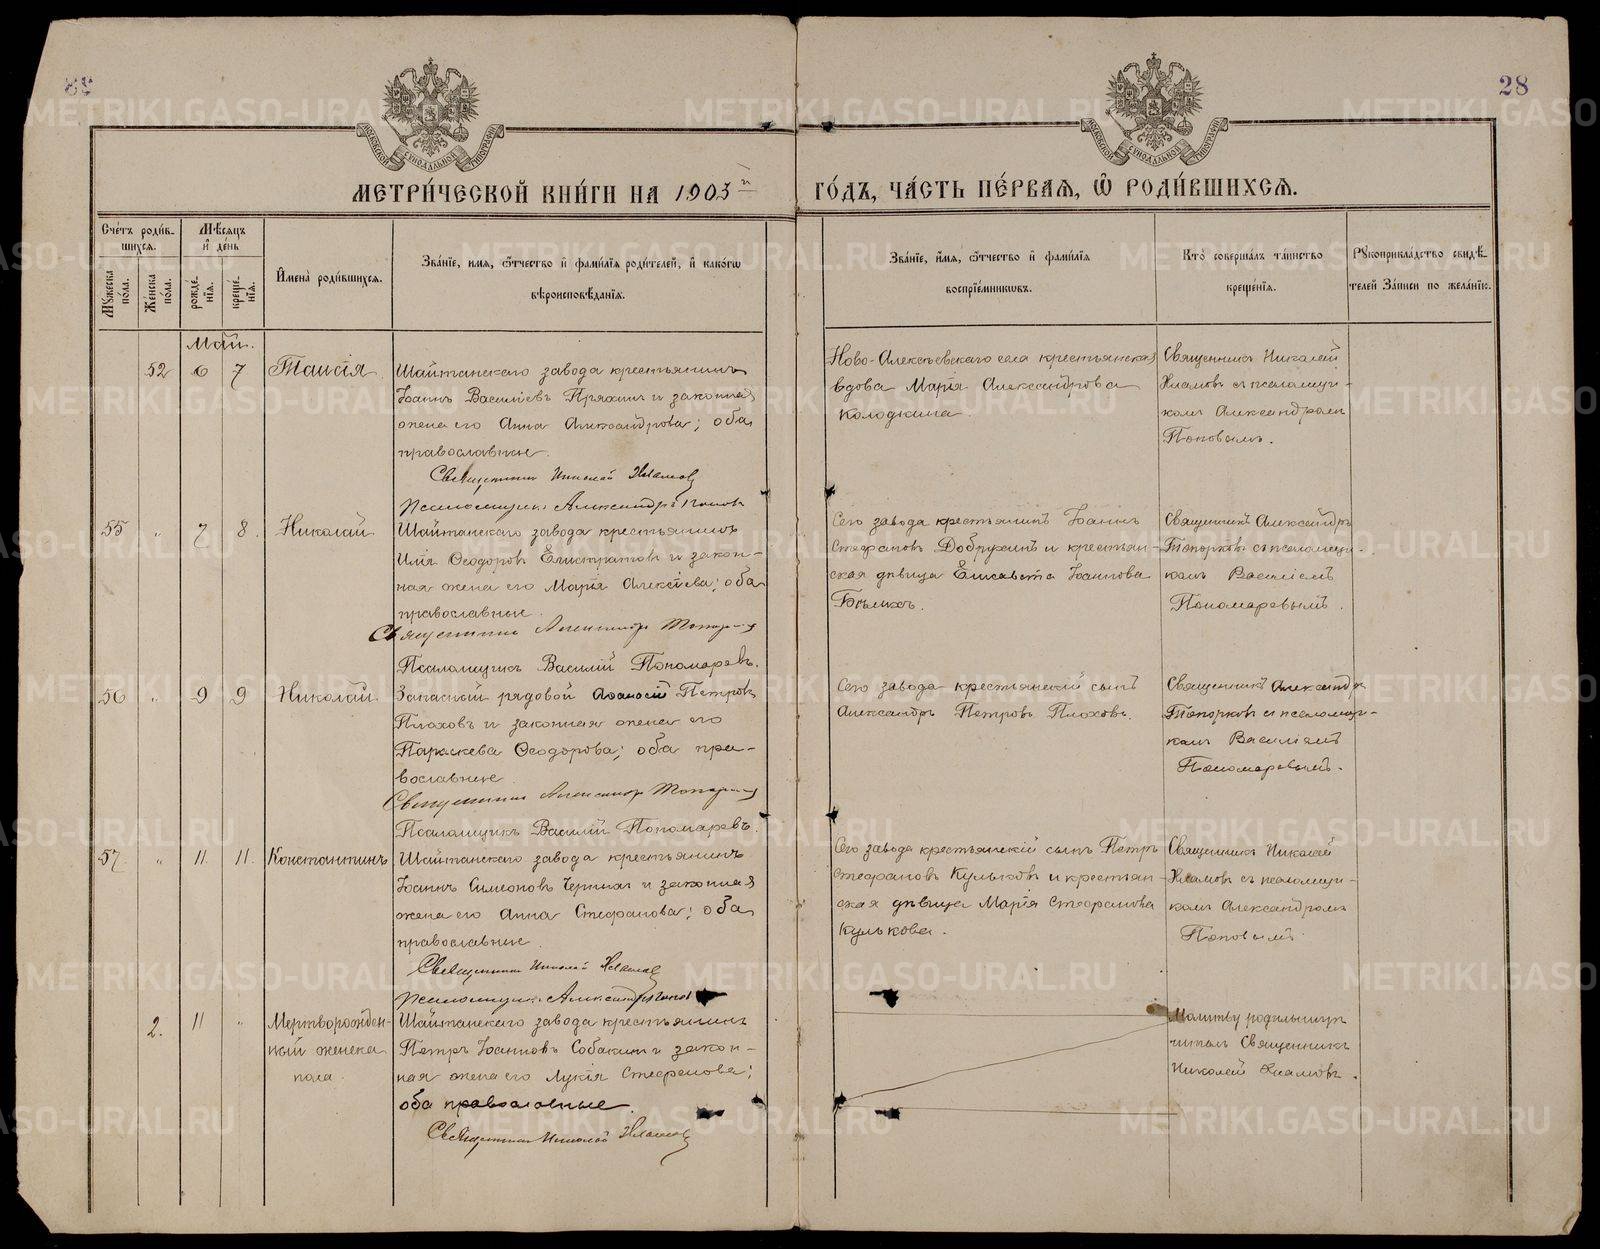 28
МОСКОВСКОЙ СѴНОДАЛЬНОЙ ТИПОГРАФІИ
МОСКОВСКОЙ СѴНОДАЛЬНОЙ ТИПОГРАФІИ
МЕТРИ́ЧЕСКОЙ КНИ́ГИ НА 1903 й ГО́ДЪ, ЧА́СТЬ ПЕ́РВАЯ, Ѽ РОДИ́ВШИХСЯ.
Сче́тъ роди́в-
шихся.
Мѣсяцъ
и де́нь
Му́жеска по́ла.
Же́нска по́ла.
рожде́-
нія.
креще́-
нія.
Имена̀ роди́вшихся.
Зва́ніе, имя, ѿтчество и фами́лія роди́телей, и како́гѡ
вѣроисповѣ́данія.
Зва́ніе, и́мя, ѿтчество и фами́лія
воспріе́мникѡвъ.
Кто̀ соверша́лъ та́инство
креще́нія.
Рукоприкла́дство свидѣ́-
телей За́писи по жела́нію.
Май.
52 6 7 Таисія
Шайтанскаго завода крестьянинъ
Іоаннъ Васильевъ Пряхинъ и законная
жена его Анна Александрова; оба
православные.
Священникъ Николай
Псаломщикъ Александръ Поповъ
Ново-Алексѣевскаго села крестьянская
вдова Марія Александрова
Колодкина.
Священникъ Николай
съ псаломщи-
комъ Александромъ
Поповымъ.
55 " 7 8 Николай
Шайтанскаго завода крестьянинъ
Илія Ѳеодоровъ Елистратовъ и закон-
ная жена его Марія Алексѣева; оба
православные.
Священникъ Александръ Топорковъ
Псаломщикъ Василій Пономаревъ.
Сего завода крестьянинъ Іоаннъ
Стефановъ Добрунинъ и крестьян-
ская дѣвица Елисавета Іоаннова
Бѣлыхъ.
Священникъ Александръ
Топорковъ съ псаломщи-
комъ Василіемъ
Пономаревымъ.
56 " 9 9 Николай
Запасный рядовой Аѳанасій Петровъ
Плоховъ и законная жена его
Параскева Ѳеодорова; оба пра-
вославные
Священникъ Александръ Топорковъ
Псаломщикъ Василій Пономаревъ.
Сего завода крестьянскій сынъ
Александръ Петровъ Плоховъ.
Священникъ Александръ
Топорковъ съ псаломщи-
комъ Василіемъ
Пономаревымъ.
57 " 11 11. Константинъ
Шайтанскаго завода крестьянинъ
Іоаннъ Симеоновъ и законная
жена его Анна Стефанова; оба
православные.
Священникъ Николай
Псаломщикъ Александръ Поповъ
Сего завода крестьянскій сынъ Петръ
Стефановъ Кульковъ и крестьян-
ская дѣвица Марія Стефанова
Кулькова.
Священникъ Николай
съ псаломщи-
комъ Александромъ
Поповымъ.
2. 11 " Мертворожден-
ный женска
пола.
Шайтанскаго завода крестьянинъ
Петръ Іоанновъ Собакинъ и закон-
ная жена его Лукія Стефанова;
оба православные.
Священникъ Николай
Молитву родильницѣ
читалъ Священникъ
Николай
METRIKI.GASO-URAL.RU